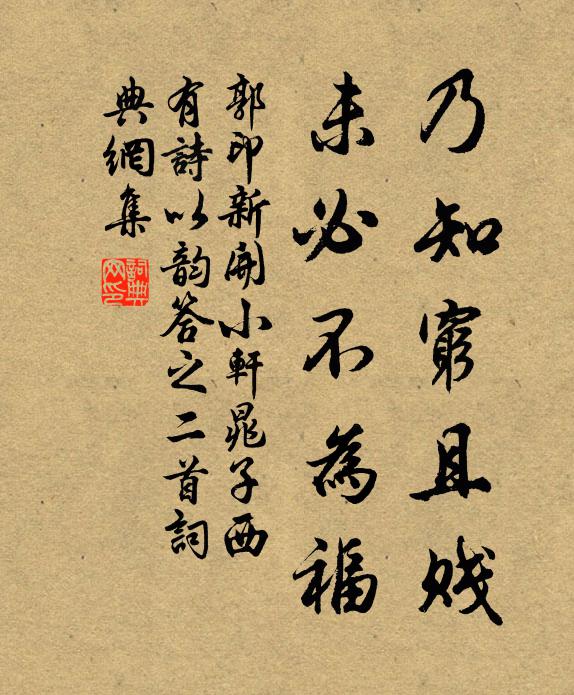 乃知窮且賤
未必不為福
郭印新開小軒晁子西
有詩以韵答之二首詞
典網集
詞典网印